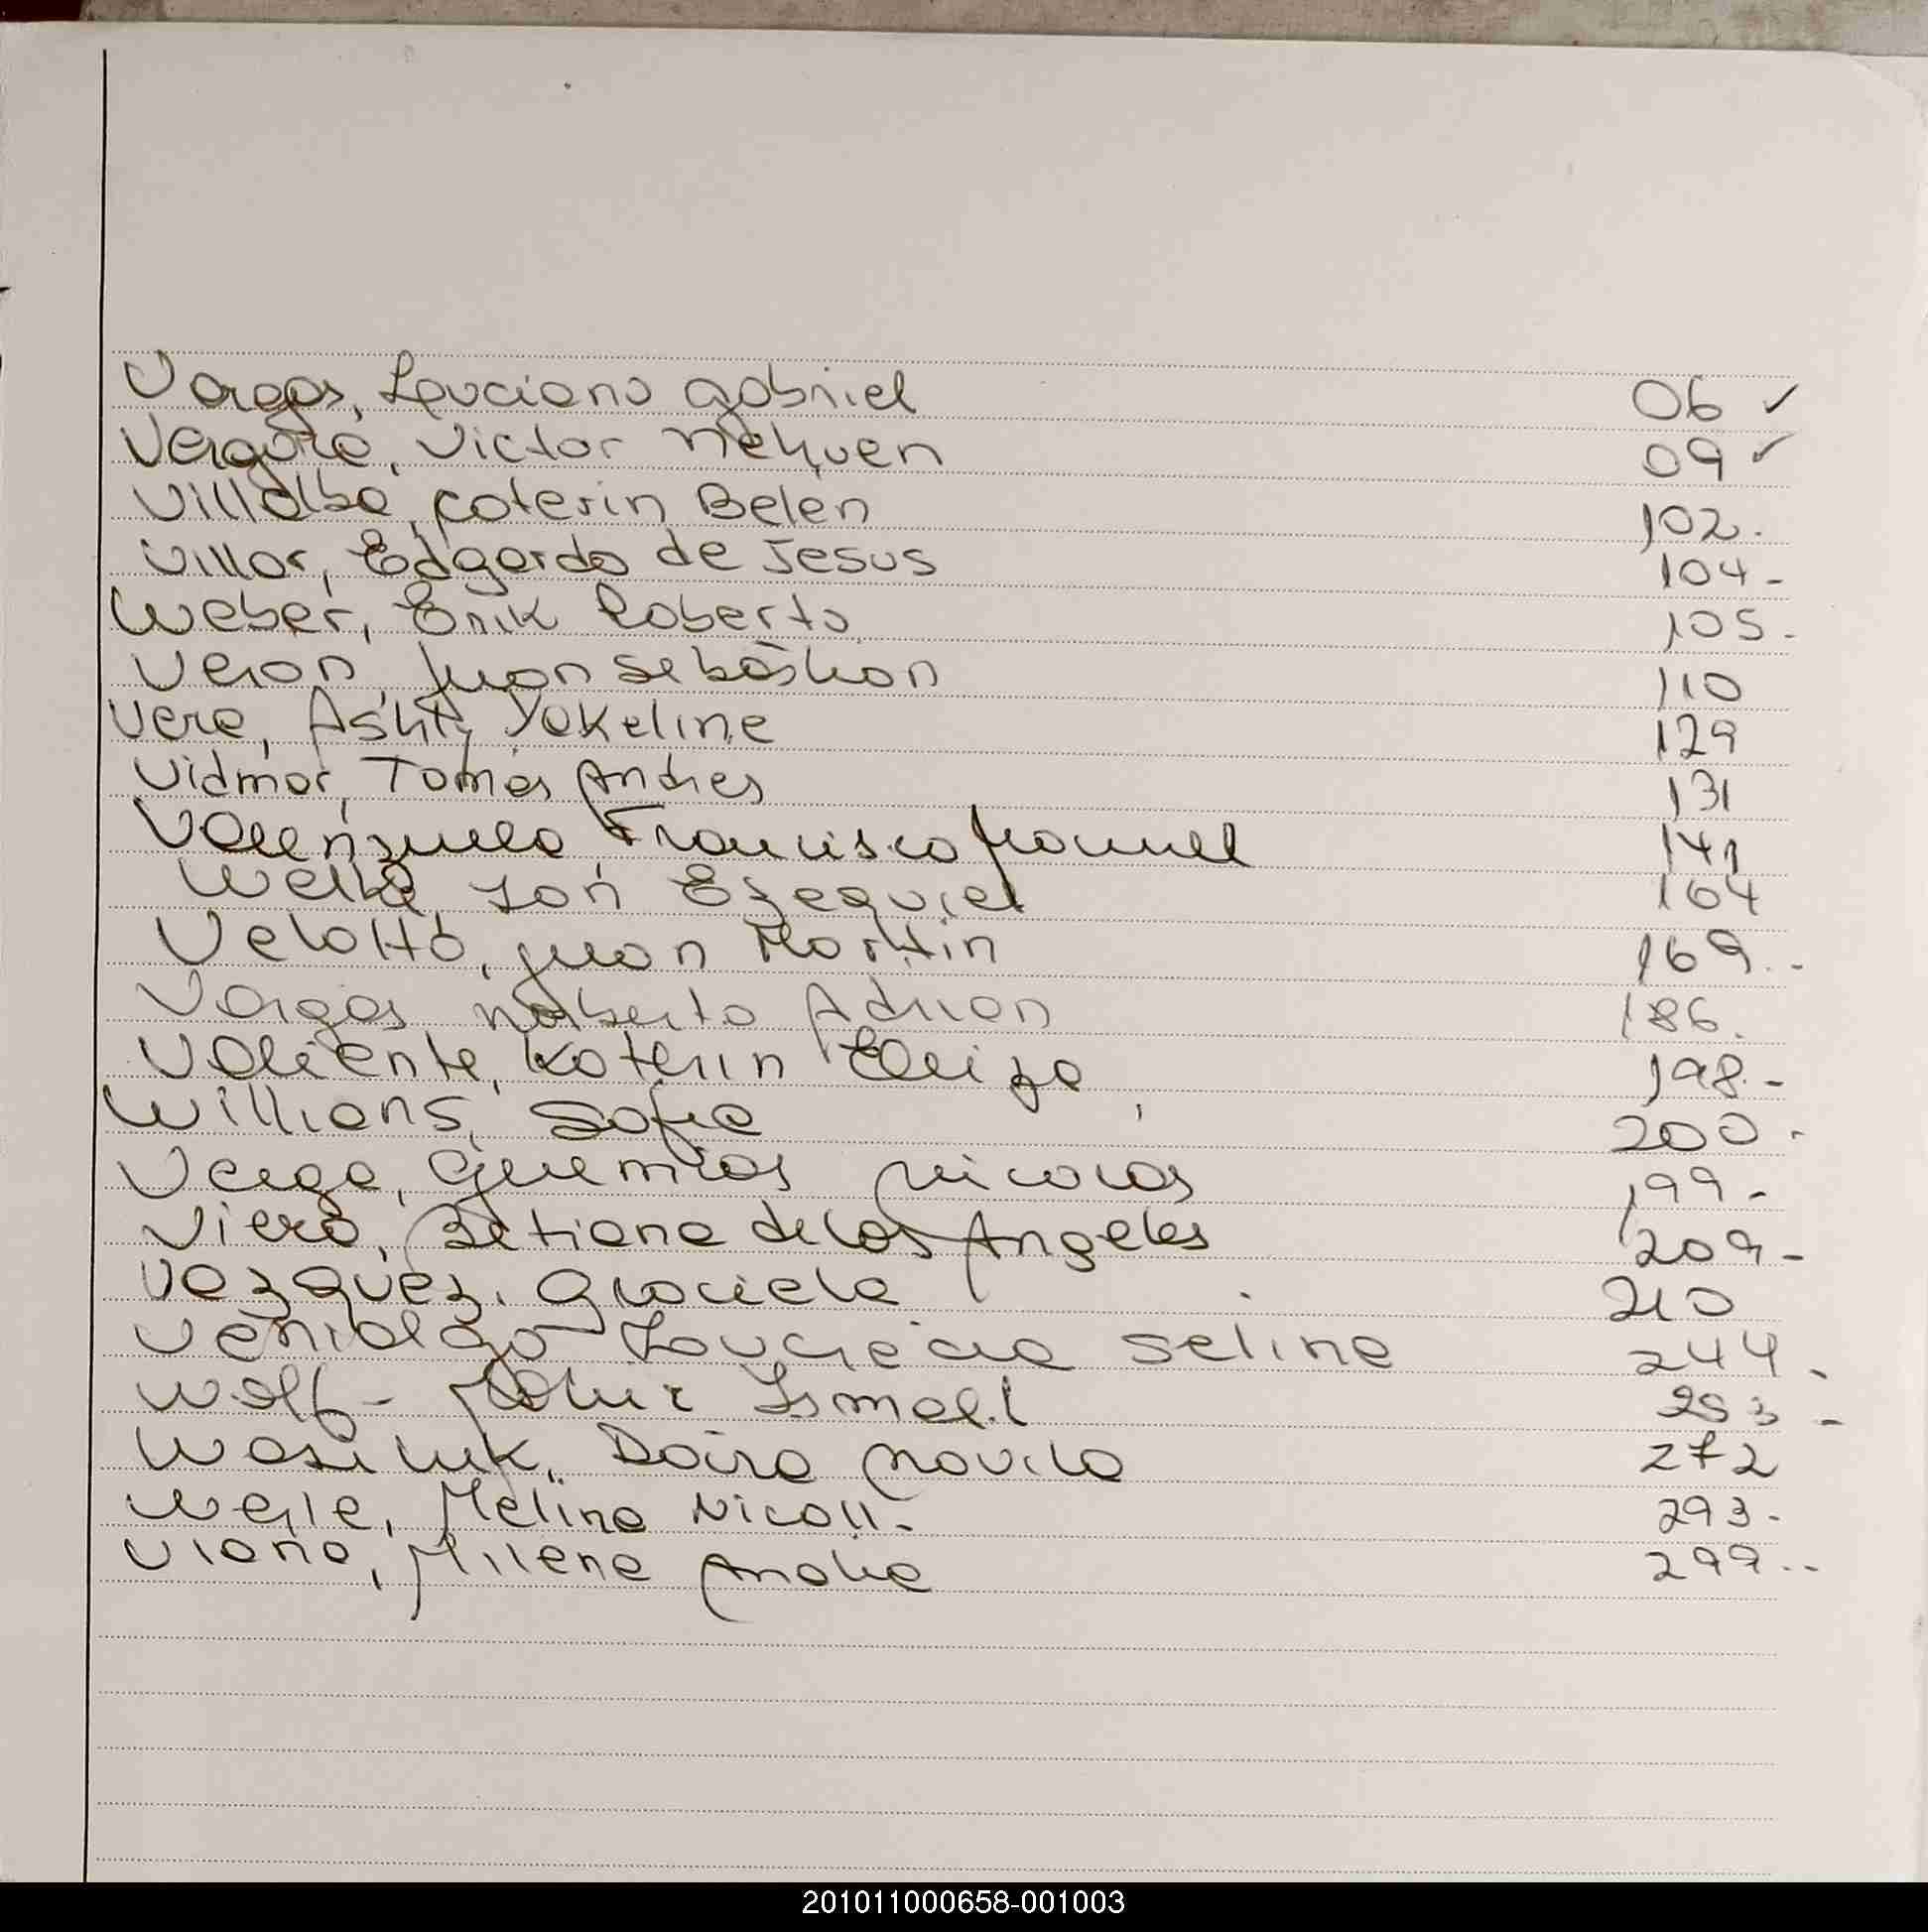 Vargas, Leuciano Gabriel 06 ✓
Vergara, Victor Nehuen 09 ✓
Villalba, Caterin Belen 102.
Villar, Edgardo de Jesus 104-
Weber, Erik Roberto 105-
Veron, Juan Sebastian 110
Vera, Ashly Yakeline 129
Vidmar, Tomas Andres 131
Valenzuela, Francisco Manuel 141
Ion Ezequiel 164
Juan Martin 169.-
Vargas, Norberto Adrian 186.
Valiente, Katerin Eliza 198-
Willians, Sofia 200-
Verga, Geremias Nicolas 199-
Viera, Betiana de los Angeles 209-
Vazquez, Graciela 210
Selina 244-
Wolf- Ismael 253-
Wasiluk, Daira 272
Melina Nicoll- 293-
Viana, Milena 299--
201011000658-001003